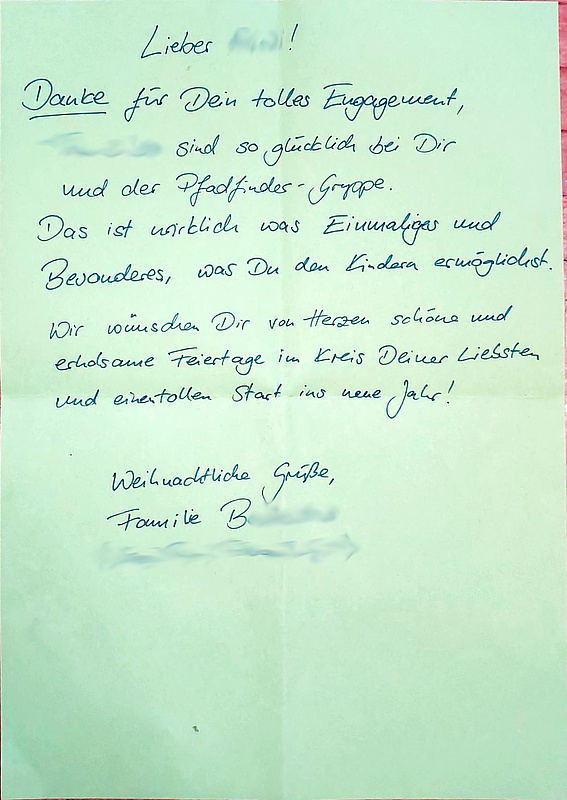 Lieber !
Danke für Dein tolles Engagement,
sind so glücklich bei Dir
und der Pfadfinder-Gruppe.
Das ist wirklich was Einmaliges und
Besonderes, was Du den Kindern ermöglichst.
Wir wünschen Dir von Herzen schöne und
erholsame Feiertage im Kreis Deiner Liebsten
und einen tollen Start ins neue Jahr!
Weihnachtliche Grüße,
Familie B